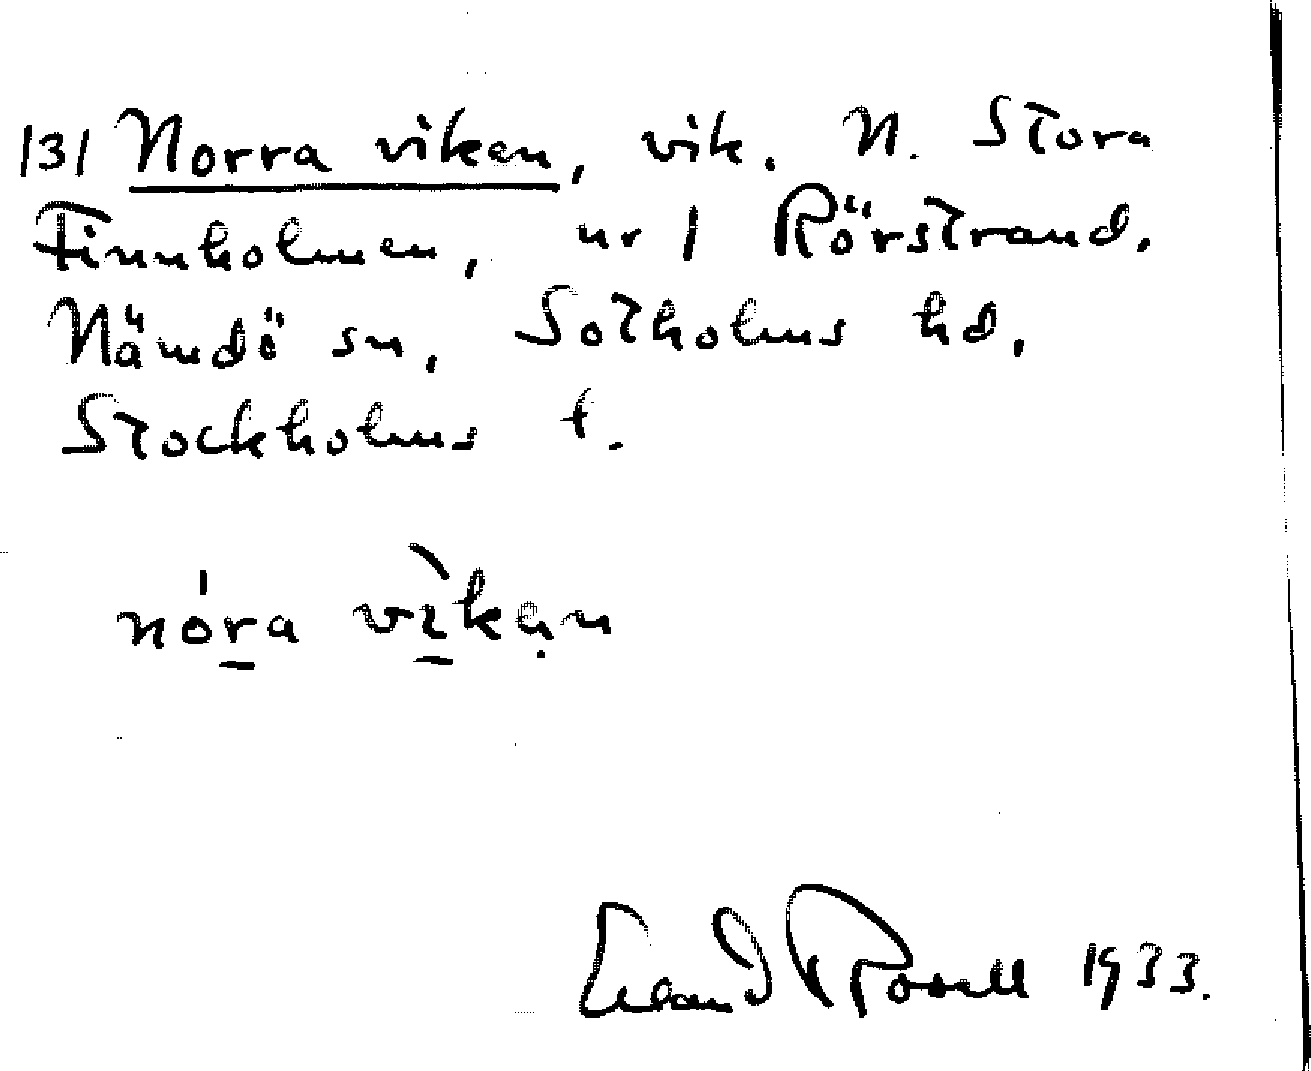 131 Norra viken, vik. N. Stora
Finnholmen, nr 1 Rörstrand.
Nämdö sn, Sotholms hd,
Stockholms l.
nóra vìkạn
Erland Rosell 1933.